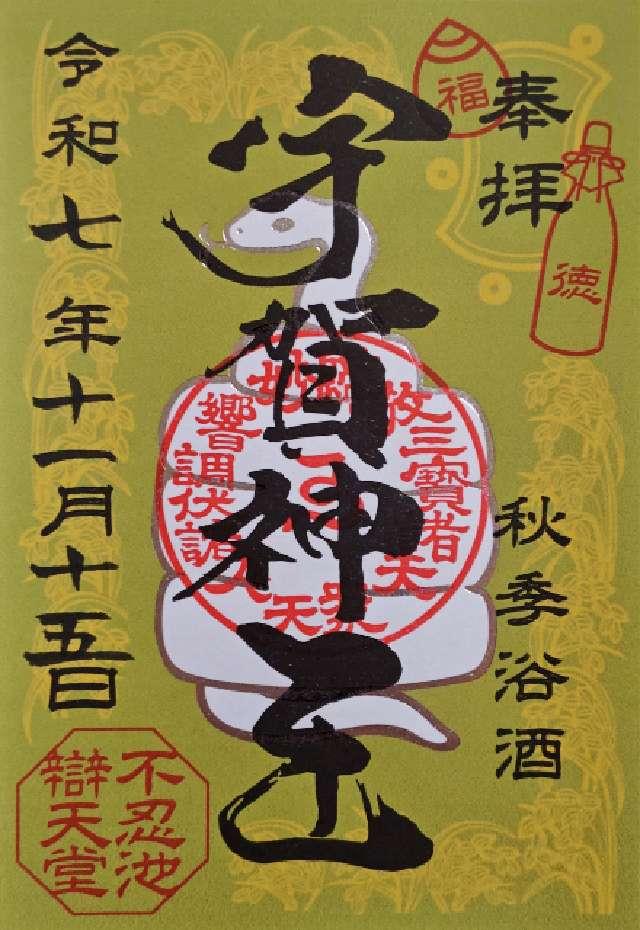 奉拝
福
徳
秋季浴酒
宇賀神王
敬三寶者天
響調伏
天
令和七年十一月十五日
不忍池
辯天堂